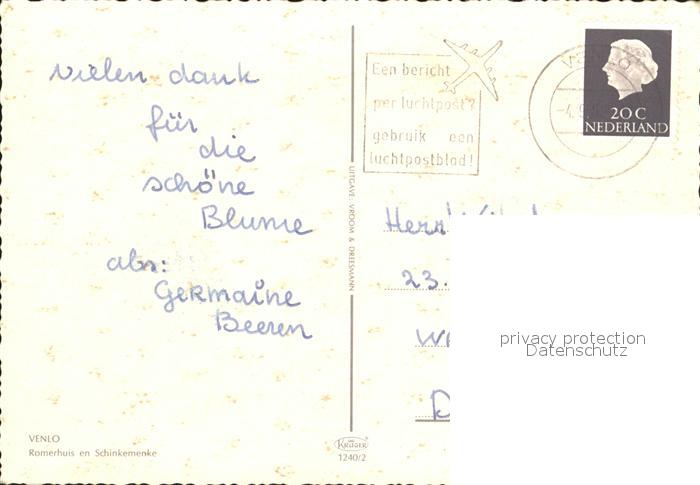 vielen dank
für
die
schöne
Blume
abs:
Germaine
Beeren
VENLO
Romerhuis en Schinkemenke
UITGAVE: VROOM & DREESMANN
KRÜGER
1240/2
Een bericht
per luchtpost?
gebruik een
luchtpostblad!
20 C
NEDERLAND
Herr
23.
privacy protection
Datenschutz